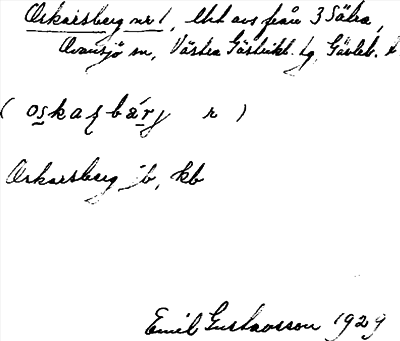 Oskarsberg nr 1, lht avs från 3 Säka,
Ovansjö sn, Västra Gästrikl. tg, Gävleb. l.
(oskaʂbárj r)
Oskarsberg jb, kb
Emil Gustavsson 1929